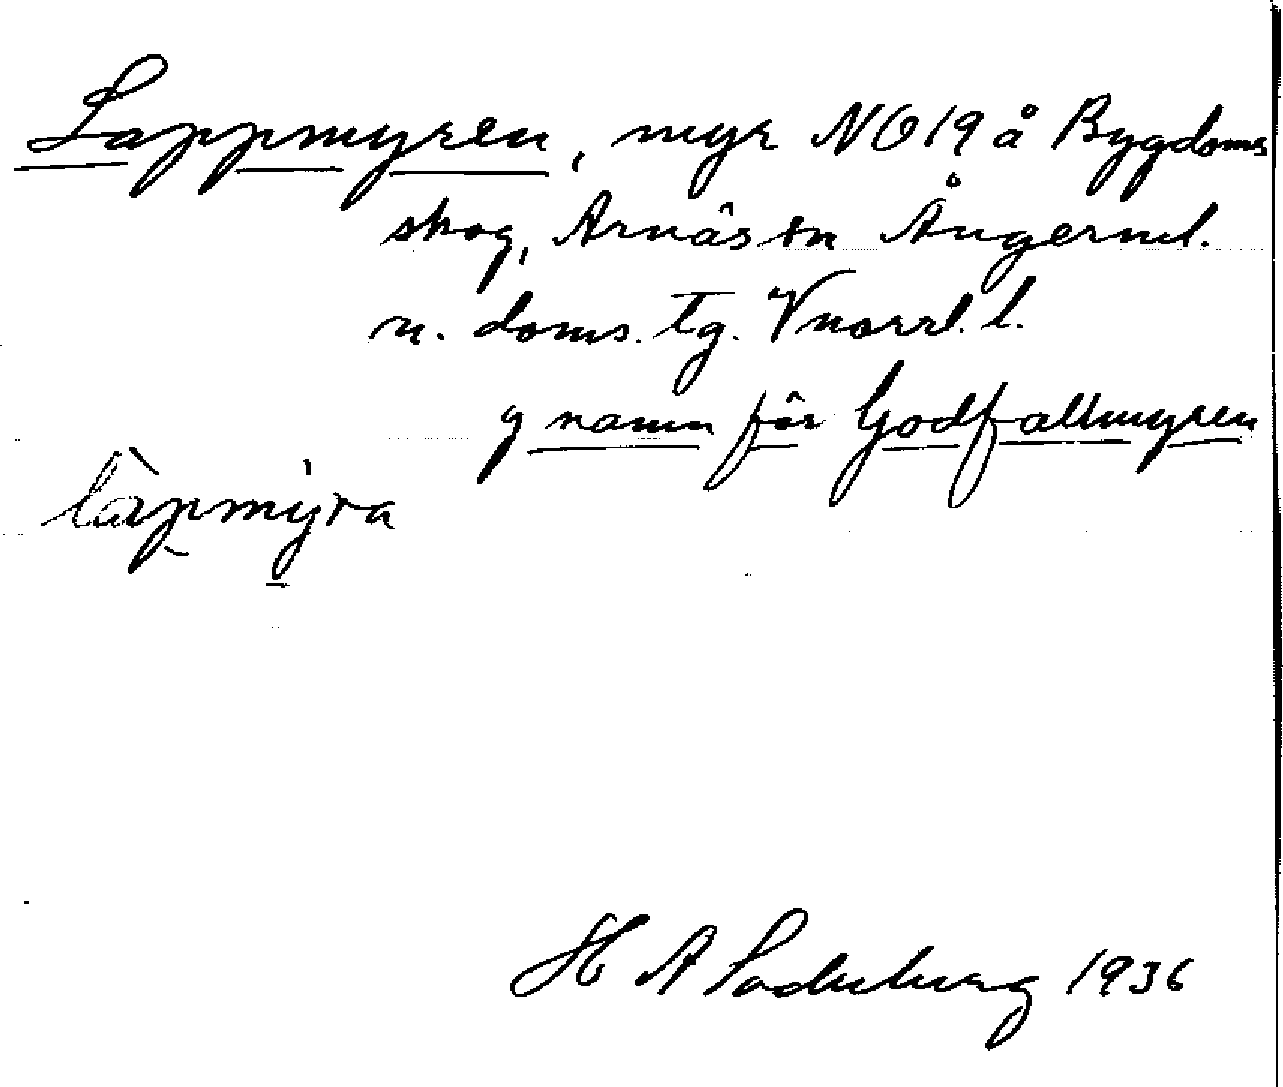 Lappmyren, myr NO 19 å Bygdoms
skog, Arnäs sn Ångerml.
n. doms. tg. Vnorrl. l.
g namn för Godfallmyren
làpmýra
H A Söderberg 1936